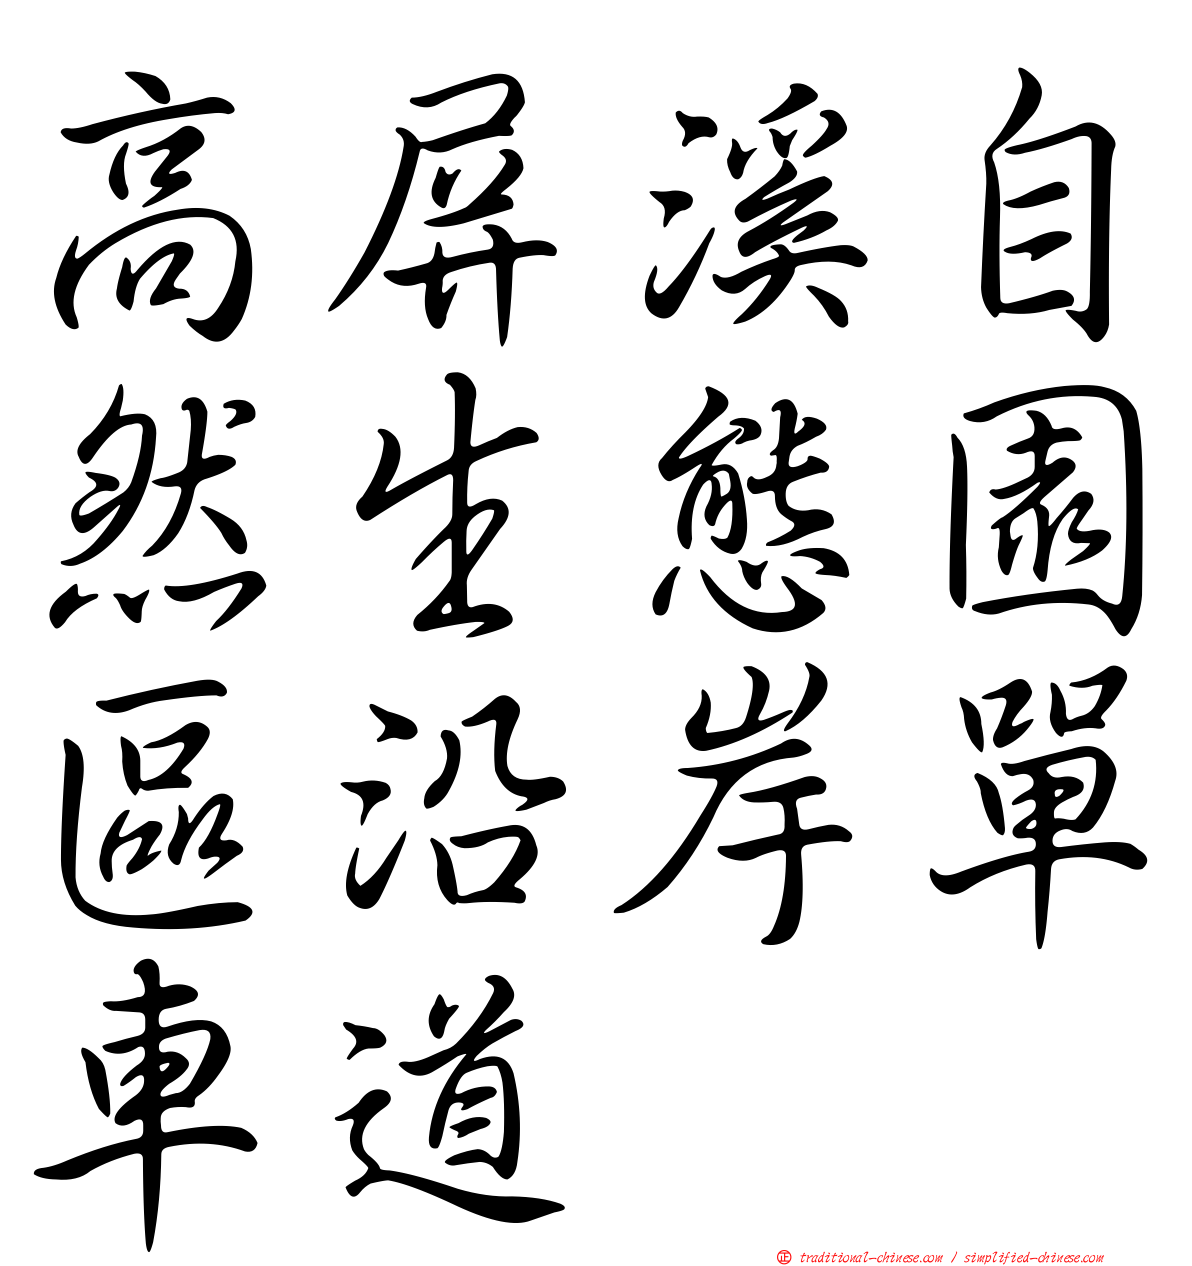 高屏溪自
然生態園
區沿岸單
車道
正 traditional-chinese.com / simplified-chinese.com